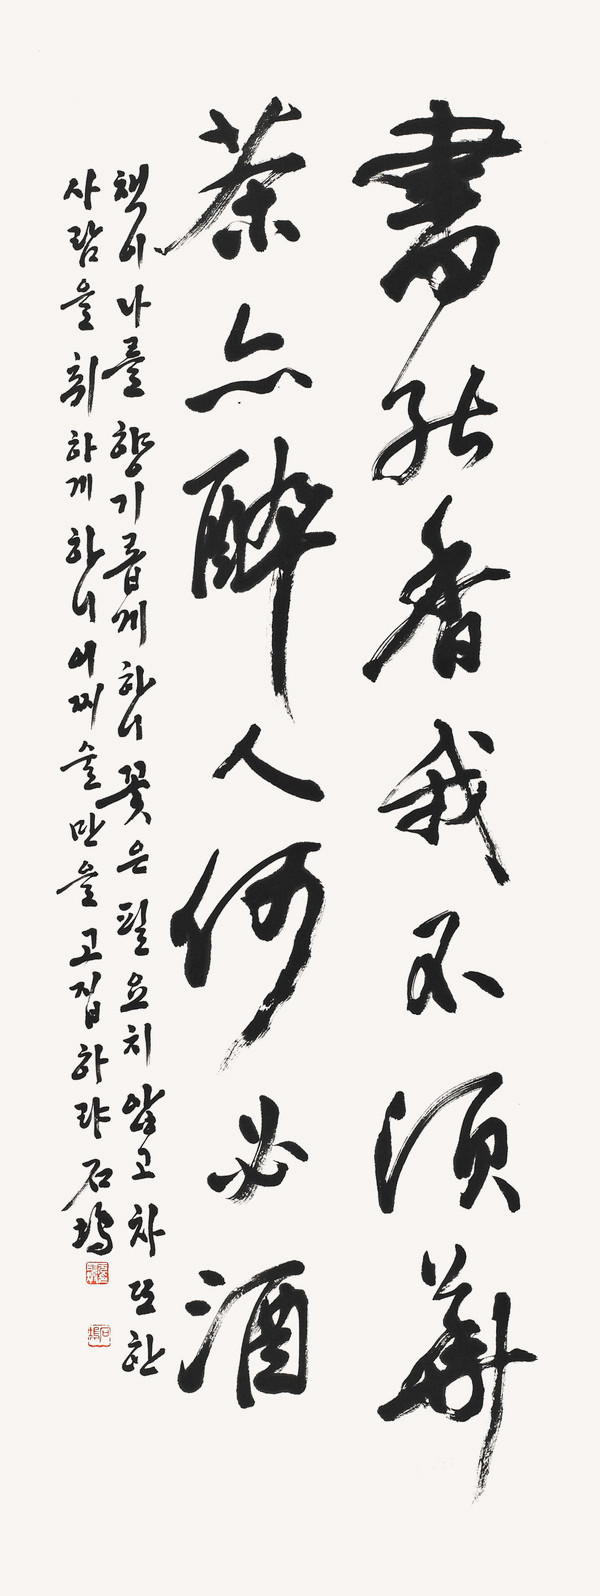 書能香我不須華
茶亦醉人何必酒
책이 나를 향기롭게 하니 꽃은 필요치 않고 차 또한
사람을 취하게 하니 어찌 술만을 고집하랴 石塢